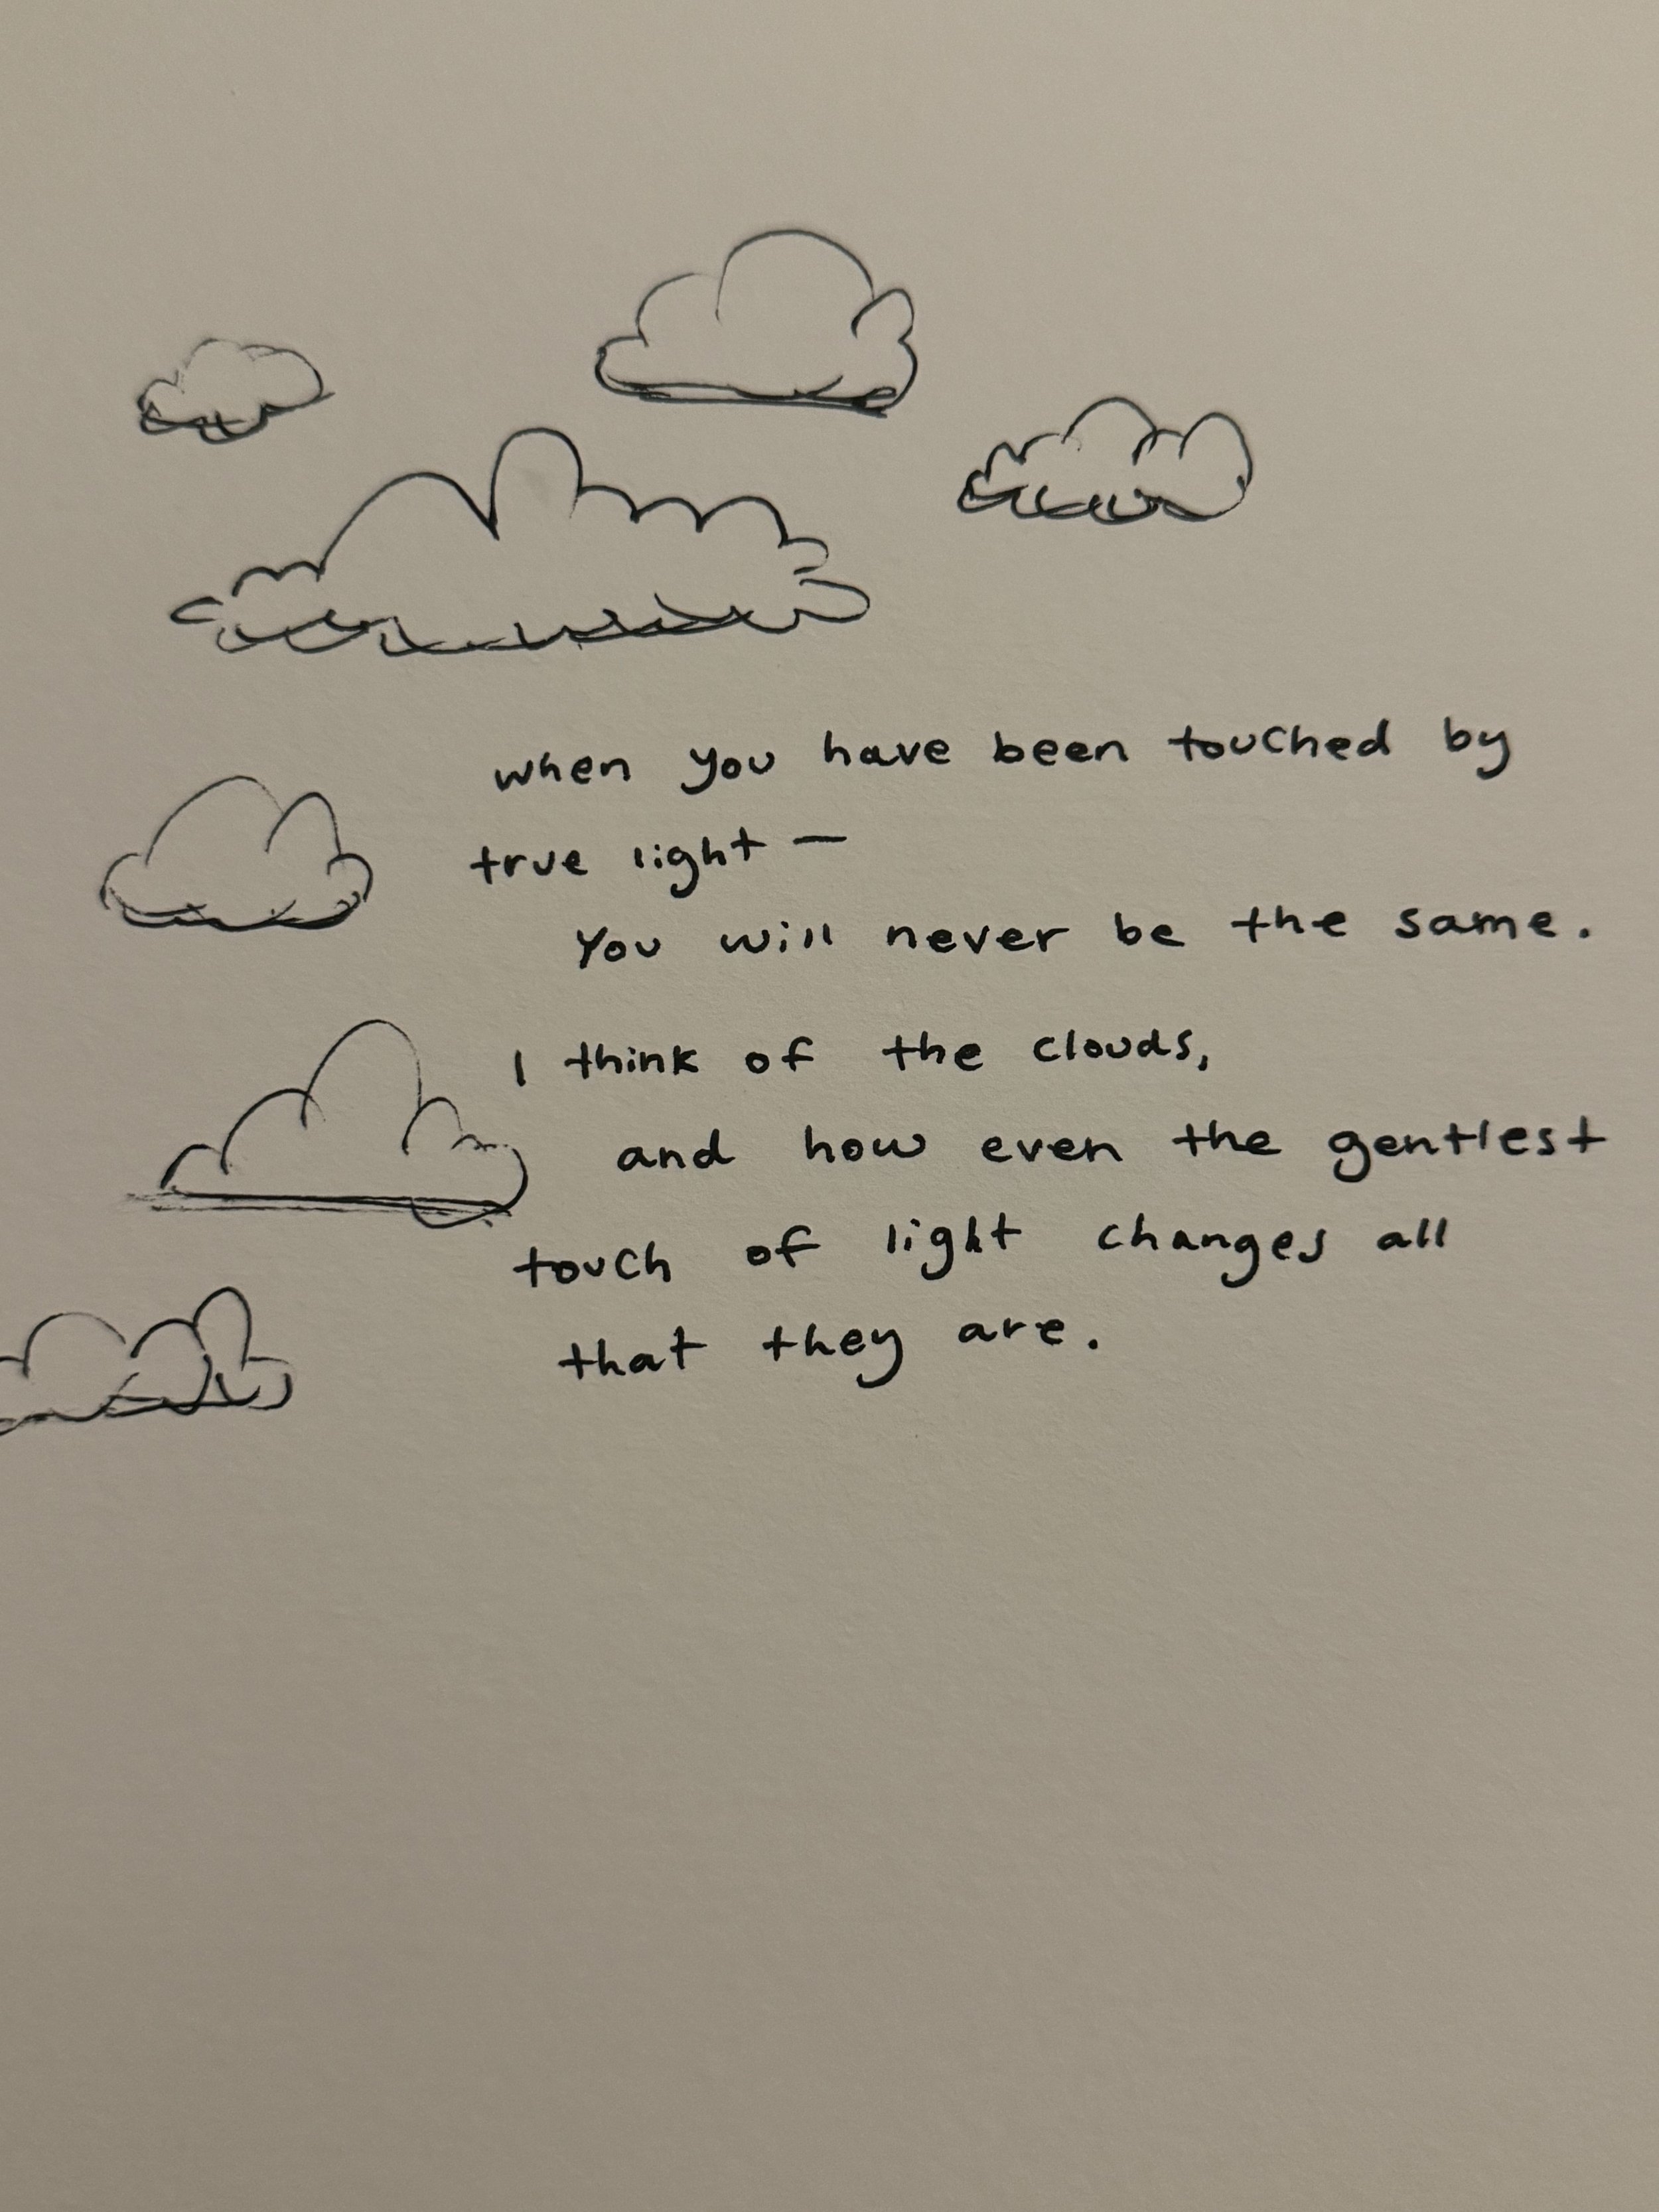 when you have been touched by
true light —
You will never be the same.
I think of the clouds,
and how even the gentlest
touch of light changes all
that they are.